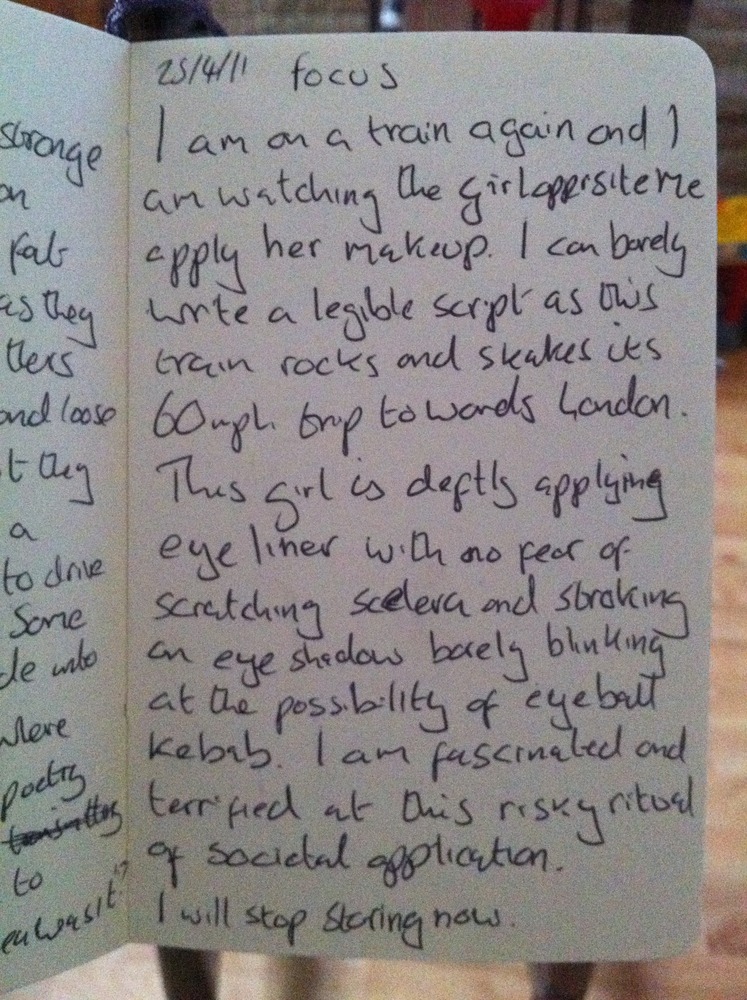 strange
on
fat
as they
and loose
t they
a
to drive
Some
de into
where
poetry
to
25/4/11 focus
I am on a train again and I
am watching the girl opposite me
apply her makeup. I can barely
write a legible script as this
train rocks and shakes its
60mph trip towards London.
This girl is deftly applying
eye liner with no fear of
scratching scelera and stroking
on eye shadow barely blinking
at the possibility of eyeball
kebab. I am fascinated and
terrified at this risky ritual
of societal application.
I will stop staring now.